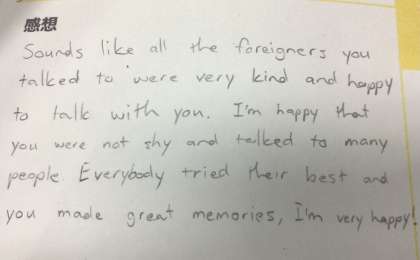 感想
Sounds like all the foreigners you
talked to were very kind and happy
to talk with you. I'm happy that
you were not shy and talked to many
people Everybody tried their best and
you made great memories, I'm very happy!